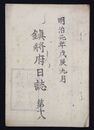 明治元年戊辰九月
鎮将府日誌 第十八